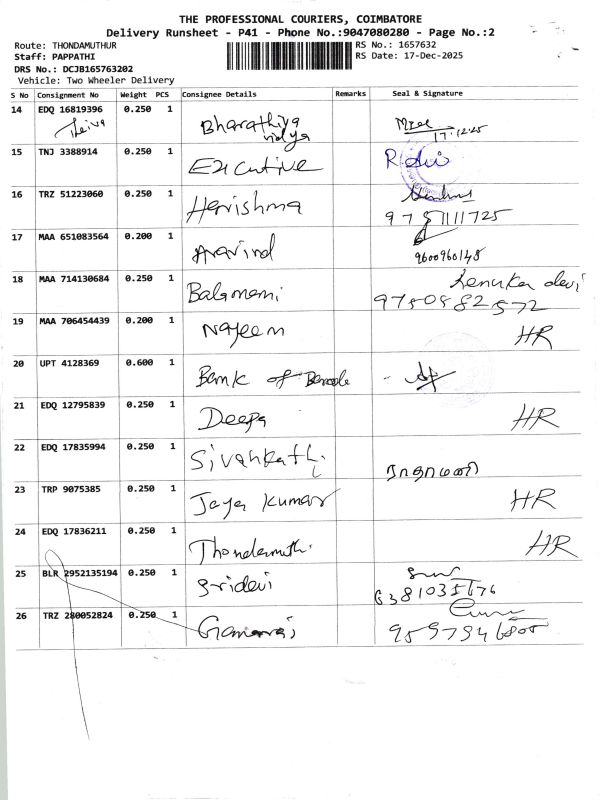 THE PROFESSIONAL COURIERS, COIMBATORE
Delivery Runsheet - P41 - Phone No.:9047080280 - Page No.:2
Route: THONDAMUTHUR
RS No.: 1657632
Staff: PAPPATHI
RS Date: 17-Dec-2025
DRS No.: DCJB165763202
Vehicle: Two Wheeler Delivery
S No Consignment No Weight PCS Consignee Details Remarks Seal & Signature
14 EDQ 16819396 0.250 1 Bharathiya vidya
17.12.25
15 TNJ 3388914 0.250 1 Executive
16 TRZ 51223060 0.250 1 Harishma
17 MAA 651083564 0.200 1 Aravind 9600960148
18 MAA 714130684 0.250 1 Balamani Renuka devi
9750882572
19 MAA 706454439 0.200 1 Najeem HR
20 UPT 4128369 0.600 1 Bank of Baroda
21 EDQ 12795839 0.250 1 Deepa HR
22 EDQ 17835994 0.250 1 Sivahkathi
23 TRP 9075385 0.250 1 Jaya Kumar HR
24 EDQ 17836211 0.250 1 Thondamuth. HR
25 BLR 2952135194 0.250 1 Sridevi
6381035676
26 TRZ 280052824 0.250 1
9597946805